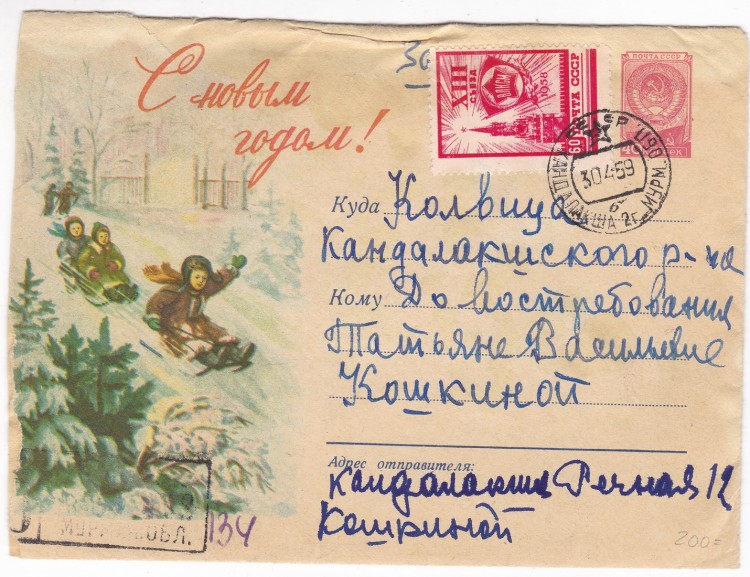 С новым
годом!
XIII
СЪЕЗД
ВЛКСМ
1958
60
ПОЧТА СССР
ПОЧТА СССР
40
КАНДАЛАКША 2 Г. МУРМ.
30.4.59
Куда Колвица
Кандалакшского р-на
Кому До востребования
Татьяне Васильевне
Кошкиной
Адрес отправителя:
Кандалакша Речная 12
Кошкиной
МУРМ. ОБЛ.
134
200=